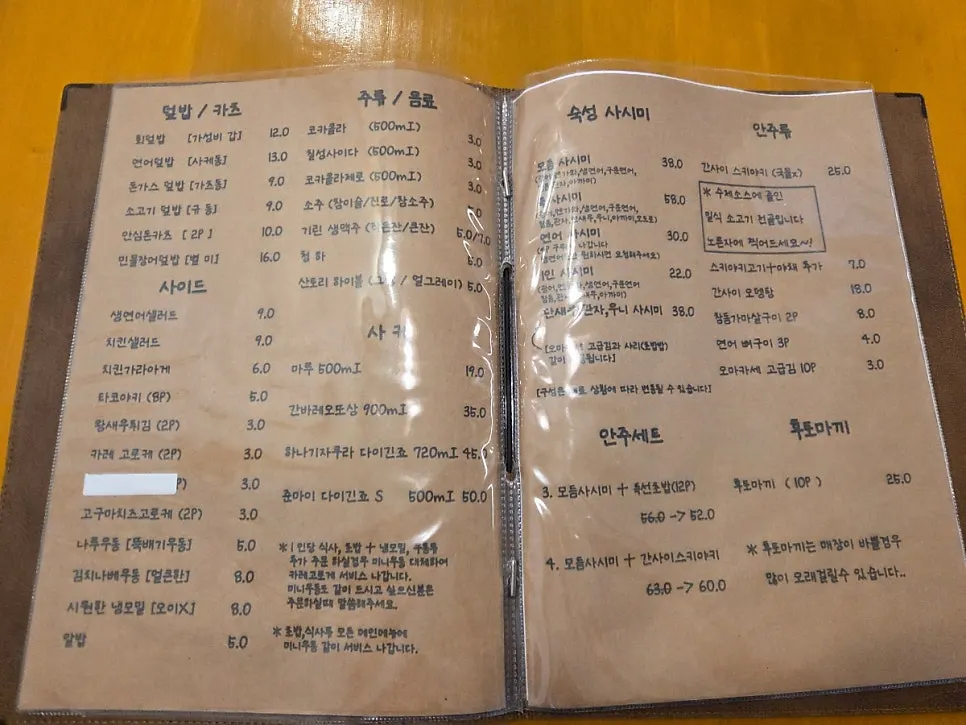 덮밥 / 카츠
회덮밥 [가성비 갑] 12.0
연어덮밥 [사케동] 13.0
돈가스 덮밥 [가츠동] 9.0
소고기 덮밥 [규동] 9.0
안심돈카츠 [ 2P ] 10.0
민물장어덮밥 [별 미] 16.0
사이드
생연어샐러드 9.0
치킨샐러드 9.0
치킨가라아게 6.0
타코야키 (8P) 5.0
왕새우튀김 (2P) 3.0
카레 고로케 (2P) 3.0
P) 3.0
고구마치즈고로케 (2P) 3.0
나루우동 [뚝배기우동] 5.0
김치나베우동 [얼큰한] 8.0
시원한 냉모밀 [오이X] 8.0
알밥 5.0
주류 / 음료
코카콜라 (500mI) 3.0
칠성사이다 (500mI) 3.0
코카콜라제로 (500mI) 3.0
소주 (참이슬/진로/참소주) .0
기린 생맥주 (작은잔/큰잔) 5.0/7.0
청하 5.0
산토리 하이볼 ( / 얼그레이) 5.0
사케
마루 500mI 19.0
간바레오또상 900mI 35.0
하나기자쿠라 다이긴죠 720mI 45.0
쥰마이 다이긴죠 S 500mI 50.0
* 1인당 식사, 초밥 + 냉모밀, 우동류
추가 주문 하실경우 미니우동 대체하여
카레고로케 서비스 나갑니다.
미니우동도 같이 드시고 싶으신분은
주문하실때 말씀해주세요.
* 초밥,식사류 모든 메인메뉴에
미니우동 같이 서비스 나갑니다.
숙성 사시미
모듬 사시미 38.0
생연어,구운연어,
사시미 58.0
연어 사시미 30.0
원하시면 요청해주세요)
1인 사시미 22.0
생연어,구운연어,
단새우,관자,우니 사시미 38.0
고급김과 사리(초밥밥)
같이
상황에 따라 변동될 수 있습니다]
안주세트
3. 모듬사시미 + 특선초밥(12P)
56.0 -> 52.0
4. 모듬사시미 + 간사이스키야키
63.0 -> 60.0
안주류
간사이 스키야키 (국물x) 25.0
* 수제소스에 졸인
일식 소고기 전골입니다
노른자에 찍어드세요~!
스키야키고기+야채 추가 7.0
간사이 오뎅탕 18.0
참돔가마살구이 2P 8.0
연어 뼈구이 3P 4.0
오마카세 고급김 10P 3.0
후토마끼
후토마끼 ( 10P ) 25.0
* 후토마끼는 매장이 바쁠경우
많이 오래걸릴수 있습니다..